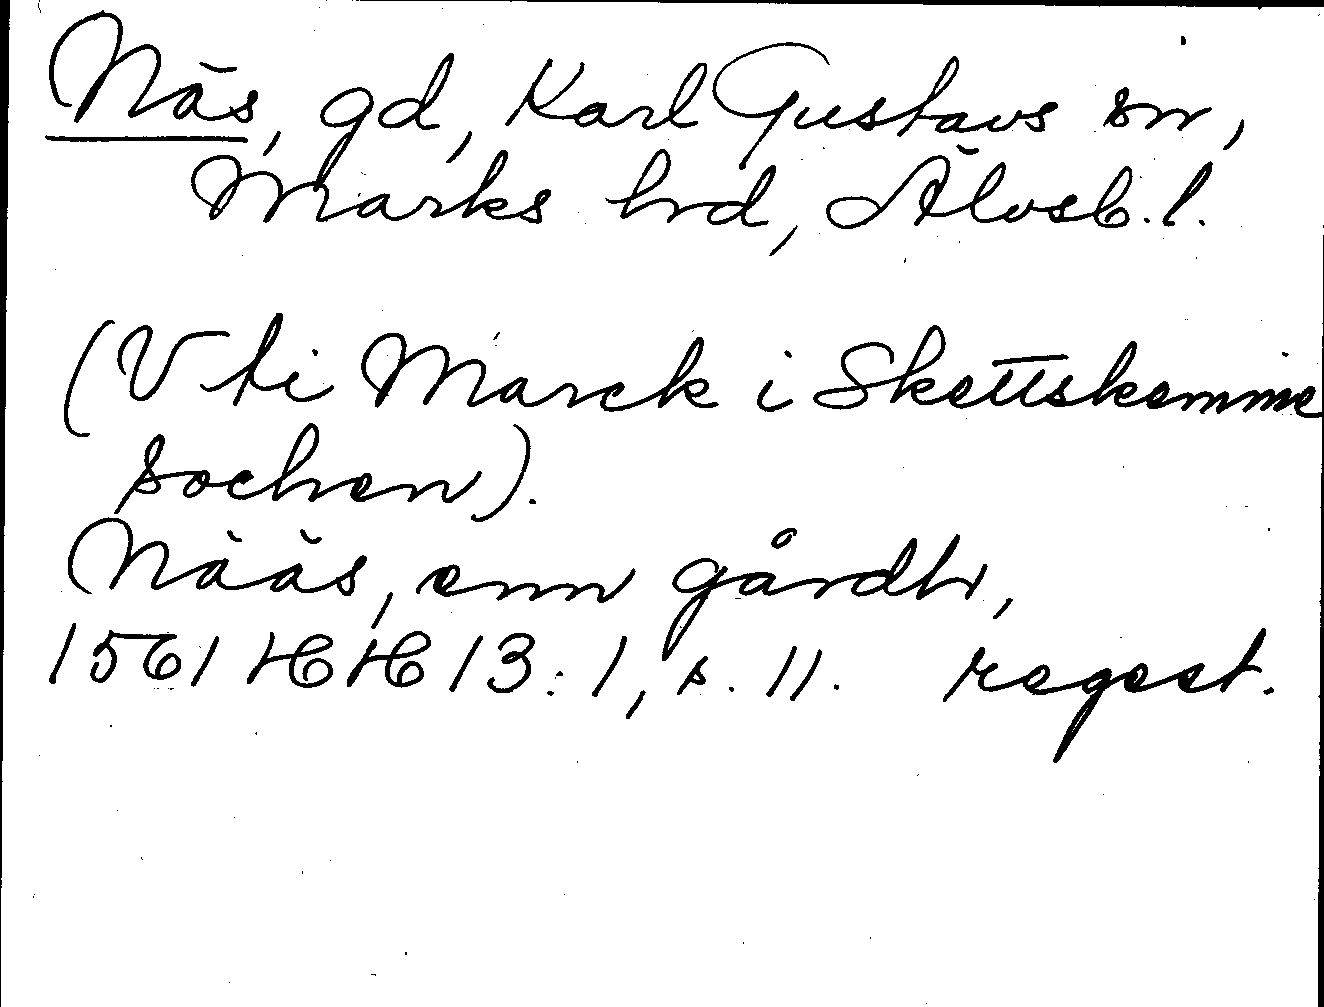 Näs, gd, Karl Gustavs sn,
Marks hd, Älvsb. l.
(Vti Marck i Skettskemme
sochen).
Nääs, enn gårdh,
1561 HH 13:1, s. 11. regest.